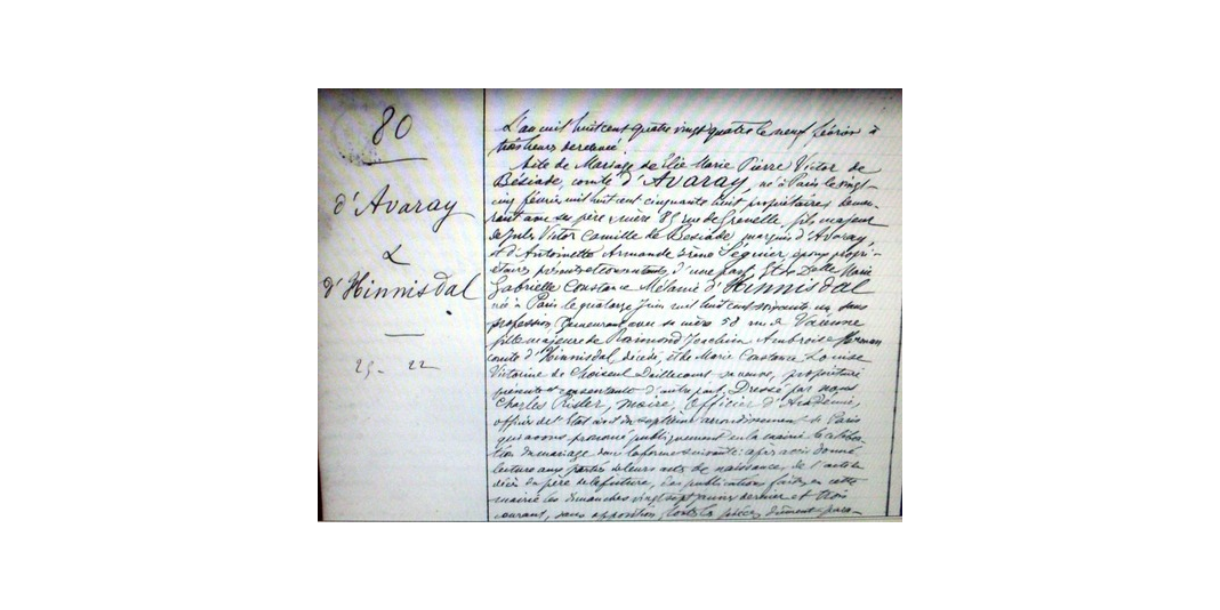 80
d'Avaray
&
d'Hinnisdal
25 - 22
L'an mil huit cent quatre vingt quatre le neuf février à
trois heures de relevé.
Acte de Mariage de Elie Marie Pierre Victor de
Bésiade, comte d'Avaray, né à Paris le vingt-
cinq février mil huit cent cinquante huit propriétaire, demeu-
rant avec ses père & mère 85 rue de Grenelle, fils majeur
de Jules Victor Camille de Besiade, marquis d'Avaray,
et d'Antoinette Armande Irène Séguier, époux proprié-
taires présents et consentants, d'une part. Et de Delle Marie
Gabrielle Constance Mélanie d'Hinnisdal
née à Paris le quatorze Juin mil huit cent soixante un, sans
profession, demeurant avec sa mère 58 rue de Varenne
fille majeure de Raimond Joachim Ambroise Herman
comte d'Hinnisdal, décédé, et de Marie Constance Louise
Victorine de Choiseul Daillecourt sa veuve, propriétaire
présente et consentante d'autre part. Dressé par nous
Charles Risler, maire, Officier d'Académie,
officier de l'Etat civil du septième arrondissement de Paris
qui avons procédé publiquement en la mairie à la célébra-
tion du mariage dans la forme suivante: après avoir donné
lecture aux parties de leurs actes de naissance, de l'acte de
décès du père de la future, des publications faites en cette
mairie les dimanches vingt sept janvier dernier et trois
courant, sans opposition, toutes les pièces dûment para-